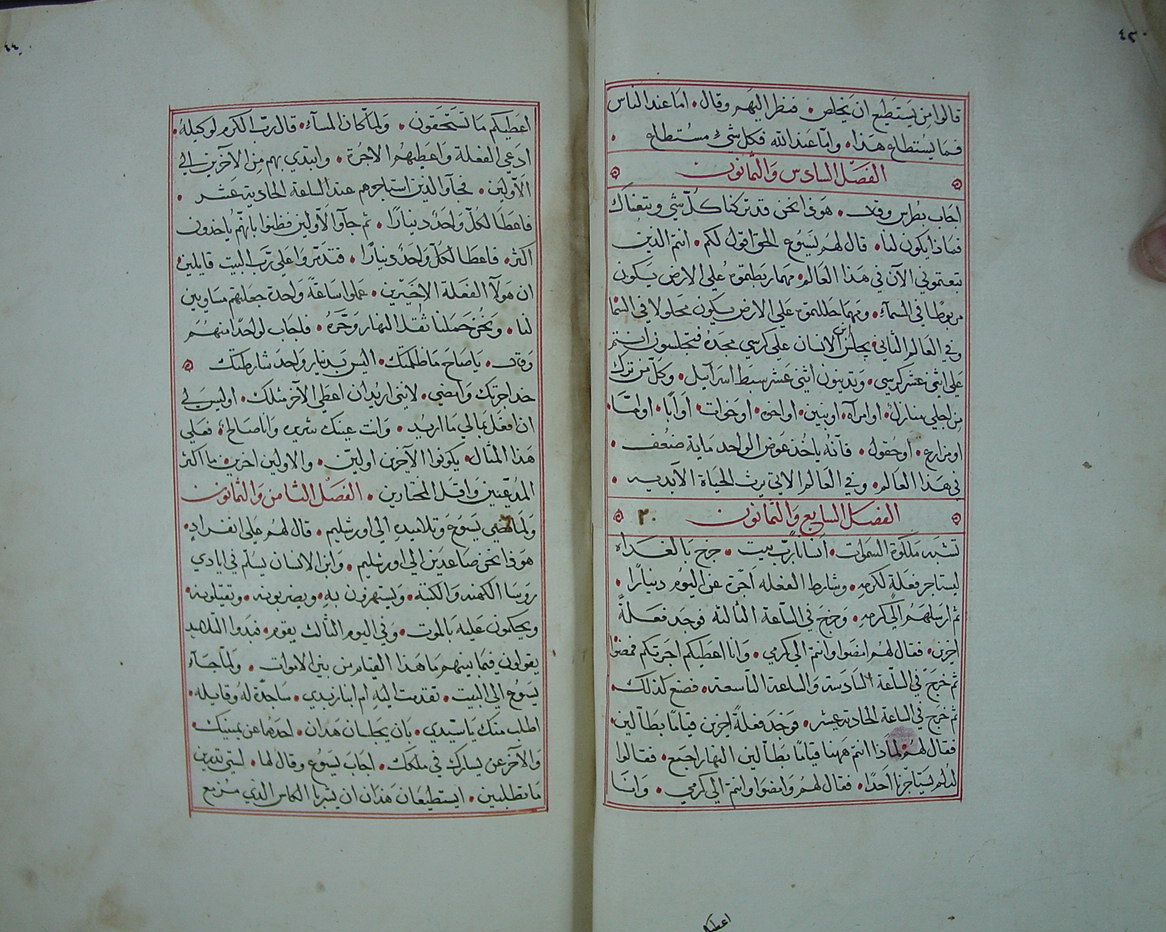 ٤٢٠
قالوا من يستطيع ان يخلص • فنظر اليهم وقال • اما عند الناس
فما يستطاع هذا • واما عند الله فكل شي مستطاع •
الفصل السادس والثمانون
اجاب بطرس وقال • هوذا نحن قد تركنا كل شي وتبعناك
فماذا يكون لنا • قال لهم يسوع الحق اقول لكم • انتم الذين
تبعتموني الآن في هذا العالم • مهما ربطتموه على الارض يكون
مربوطا في السماء • ومهما حللتموه على الارض يكون محلولا في السما
وفي العالم الثاني يجلس ابن الانسان على كرسي مجده فتجلسون انتم
على اثني عشر كرسي • وتدينون اثني عشر سبط اسرآئيل • وكل من ترك
من اجلي منازل • او امرآه • او بنين • او اخوه • او اخوات • او ابًا • او امًّا •
او مزارع • او حقول • فانه ياخذ عوض الواحد ماية ضعف •
في هذا العالم • وفي العالم الاتي يرث الحياة الآبديه •
الفصل السابع والثمانون ٢٠
تشبه ملكوة السموات • انسانا رب بيت • خرج بالغداه
ليستاجر فعلة لكرمه • وشارط الفعله اجرة عن اليوم دينارًا •
ثم ارسلهم الى كرمه • وخرج في الساعة الثالثة فوجد فعلةً
اخرين • فقال لهم امضوا وانتم الى كرمي • وانا اعطيكم اجرتكم فمضوا
ثم خرج في الساعة السادسة والساعة التاسعه • فصنع كذلك •
ثم خرج في الساعة الحادية عشر • فوجد فعلةً اخرين قيامًا بطالين •
فقال لهم لماذا انتم ههنا قيامًا بطالين النهار اجمع • فقالوا
لانه لم يستاجرنا احدًا • فقال لهم وامضوا وانتم الى كرمي • وانا
اعطيكم
اعطيكم ما تستحقون • ولما كان المسآء • قال رب الكرم لوكيله •
ادعي الفعلة واعطيهم الاجرة • وابتدي بهم من الآخرين الى
الاولين • فجآو الذين استاجرهم عند الساعة الحادية عشر •
فاعطا لكل واحد دينارًا • ثم جاوا الاولين فظنوا بانهم ياخدون
اكثر • فاعطا لكل واحد دينارًا • فتدمروا على رب البيت قايلين
ان هولآ الفعلة الاخيرين • عملوا ساعة واحدة جعلتهم مساويين
لنا • ونحن حملنا ثقل النهار وحره • فاجاب لواحدًا منهم
وقال • ياصاح ما ظلمتك • اليس بدينار واحد شارطتك
خد اجرتك وامضي • لانني اريد ان اعطي الآخر مثلك • اوليس لي
ان افعل بمالي ما اريد • وانت عينك شريره وانا صالح • فعلى
هذا المثال • يكونوا الآخرين اولين • والاولين اخرين • ما اكثر
المدعيين واقل المختارين • الفصل الثامن والثمانون
ولما مضى يسوع وتلاميده الى اورشليم • قال لهم على انفراد •
هوذا نحن صاعدين الى اورشليم • وابن الانسان يسلم في ايادي
روسا الكهنه والكتبة • ويستهزون به • ويضربونه • ويقتلونه •
ويحكمون عليه بالموت • وفي اليوم الثالث يقوم • فبدوا التلاميد
يقولون فيما بينهم ما هذا القيام من بين الاموات • ولما جآء
يسوع الى البيت • تقدمت اليه ام ابنا زبدي • ساجدة له وقايله •
اطلب منك ياسيدي • بان يجلسان هدان • احدهما عن يمينك •
والآخر عن يسارك في ملكك • اجاب يسوع وقال لها • لستي تدرين
ما تطلبين • ايستطيعان هدان ان يشربا الكاس الذي مزمع